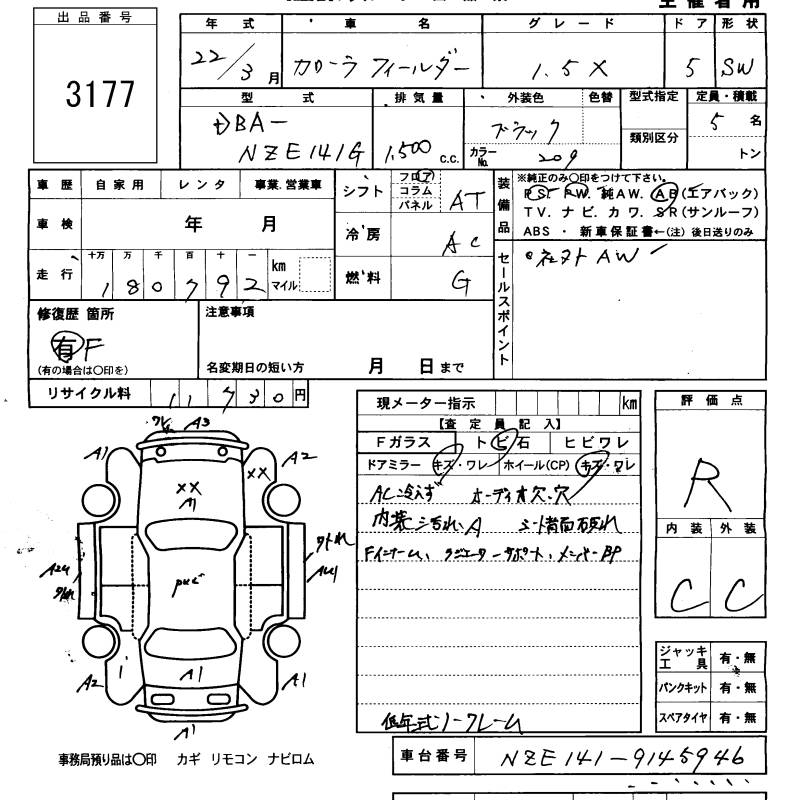 出品番号
3177
年 式 車 名 グレード ドア 形状
22/3月 カローラ フィールダー 1.5X 5 SW
型 式 排気量 外装色 色替 型式指定 定員・積載
DBA- NZE141G 1,500 c.c. ブラック 5名
カラーNo. 209 類別区分 トン
車歴 自家用 レンタ 事業.営業車
車検 年 月
走行 十万 万 千 百 十 一 km マイル
180792
シフト フロア コラム パネル AT
冷房 AC
燃料 G
装備品 ※純正のみ〇印をつけて下さい。
PS. PW. 純AW. AB(エアバック)
TV. ナビ. カワ. SR(サンルーフ)
ABS ・ 新車保証書←(注) 後日送りのみ
セールスポイント
AW
修復歴 箇所
有 F
(有の場合は〇印を)
注意事項
名変期日の短い方 月 日まで
リサイクル料 11730円
現メーター指示 km
【査定員記入】
Fガラス トビ石 ヒビワレ
ドアミラー キズ・ワレ ホイール(CP) キズ・ワレ
AC冷えず オーディオ欠.穴
内装シミ汚れ、A シート背面破れ
Fインナー、ラジエーターサポート、メンバーBP
低年式ノークレーム
評価点
R
内装 外装
C C
ジャッキ工具 有・無
パンクキット 有・無
スペアタイヤ 有・無
ワレ A3
A1 A2
XX
XX
A1
A2 A1
A1
A1
事務局預り品は〇印 カギ リモコン ナビロム
車台番号 NZE141-9145946